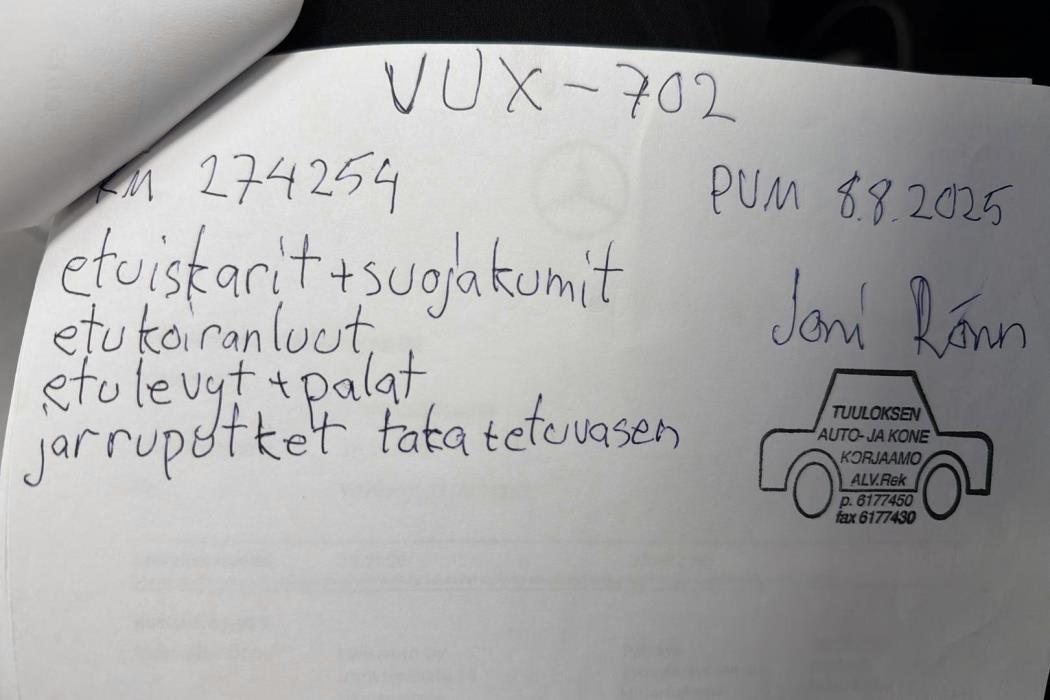 VUX-702
KM 274254
PVM 8.8.2025
etuiskarit+suojakumit
etukoiranluut
etulevyt+palat
jarrupötket taka+etuvasen
Joni Rönn
TUULOKSEN
AUTO- JA KONE
KORJAAMO
ALV.Rek
p. 6177450
fax 6177430